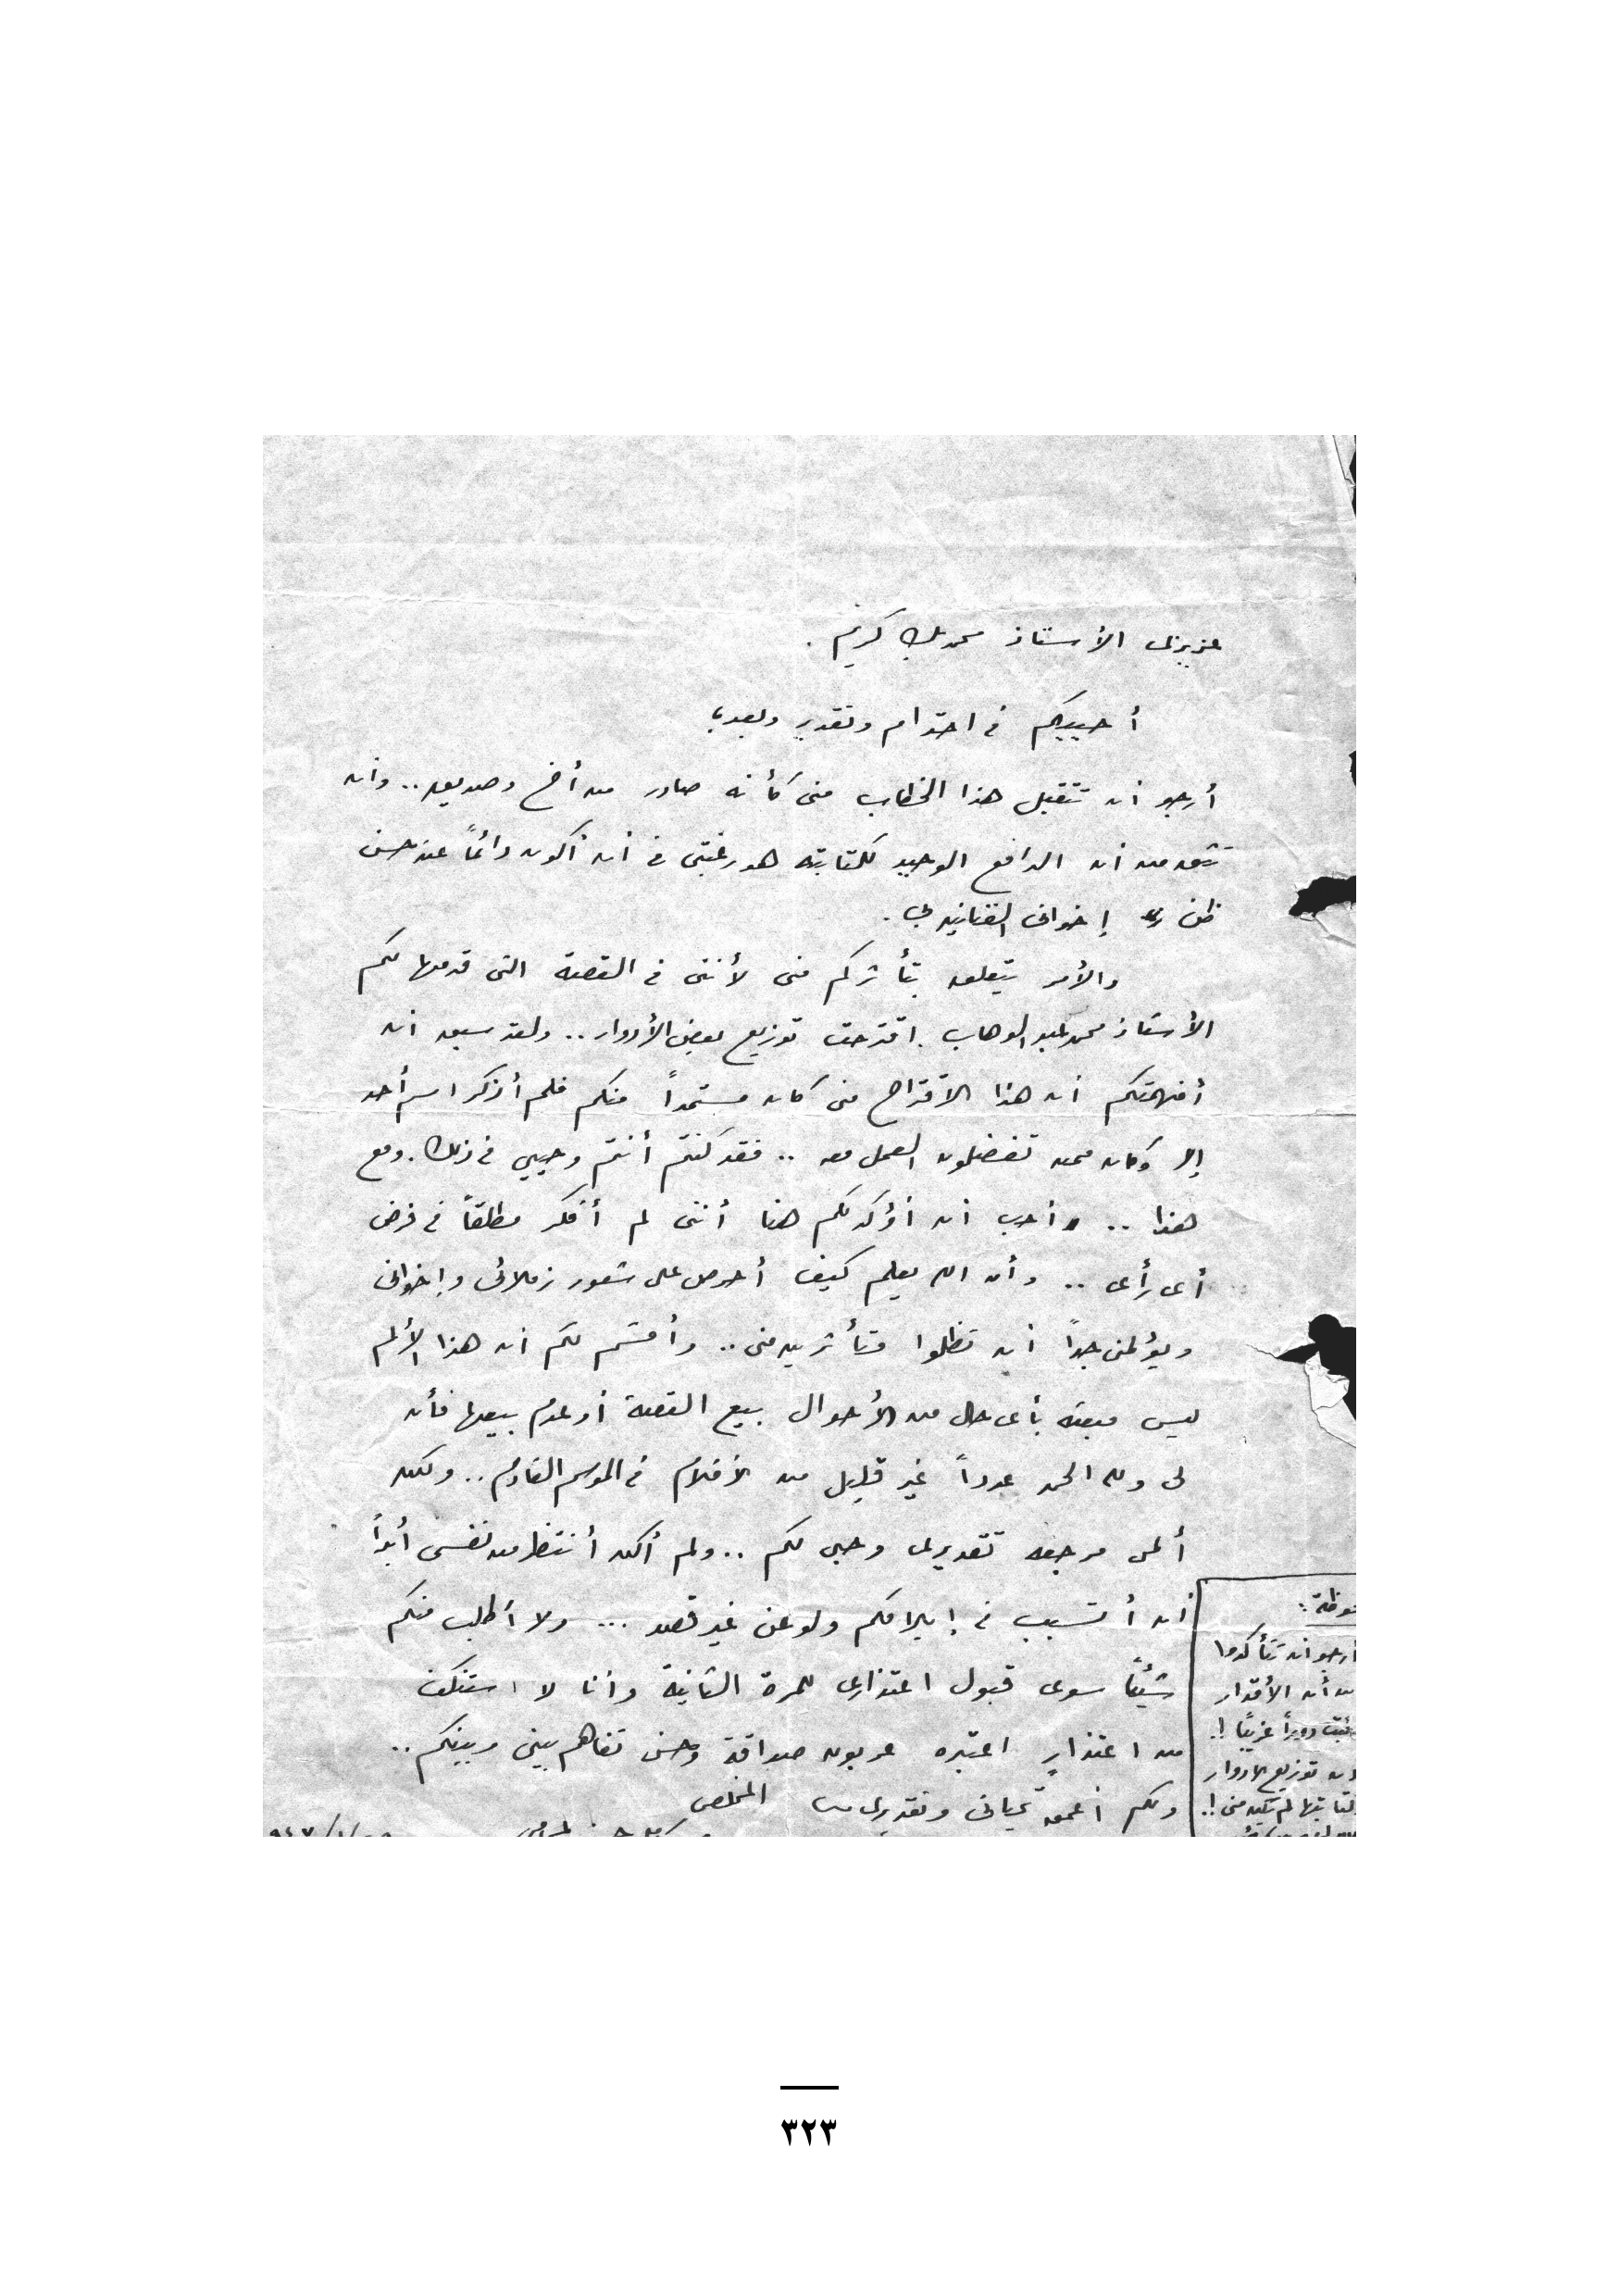 عزيزى الأستاذ محمد بك كريم .
أحييكم فى احترام وتقدير وبعد
أرجو أن تتقبل هذا الخطاب منى كأنه صادر من أخ وصديق .. وأن
تثق من أن الدافع الوحيد لكتابته هو رغبتى فى أن أكون دائماً عند حسن
ظن إخوانى الفنانين بى .
والأمر يتعلق بتأثركم منى لأننى فى القصة التى قدمها لكم
الأستاذ محمد عبد الوهاب اقترحت توزيع بعض الأدوار .. ولقد سبق أن
أفهمتكم أن هذا الاقتراح منى كان مستمداً منكم فلم أذكر اسم أحد
إلا وكان ممن تفضلون العمل معه .. فقد كنتم أنتم وحيي فى ذلك . ومع
هذا .. أحب أن أؤكد لكم هنا أننى لم أفكر مطلقاً فى فرض
أى رأى .. وأن الله يعلم كيف أحرص على شعور زملائى وإخوانى
ويؤلمنى جداً أن تظلوا متأثرين منى .. وأقسم لكم أن هذا الألم
ليس مبعثه بأى حال من الأحوال بيع القصة أو عدم بيعها فأن
لى ولله الحمد عدداً غير قليل من الأفلام فى الموسم القادم .. ولكن
ألمى مرجعه تقديرى وحبى لكم .. ولم أكن أنتظر من نفسى أبداً
أن أتسبب فى إيلامكم ولو عن غير قصد ... ولا أطلب منكم
شيئاً سوى قبول اعتذارى للمرة الثانية وأنا لا استنكف
من اعتذارٍ اعتبره عربون صداقة وحسن تفاهم بينى وبينكم ..
ولكم أعمق تحياتى وتقديرى المخلص
أرجو أن تتأكدوا
من أن الأقدار
دوراً غريباً !.
توزيع الأدوار
لم تكن منى !.
٣٢٣